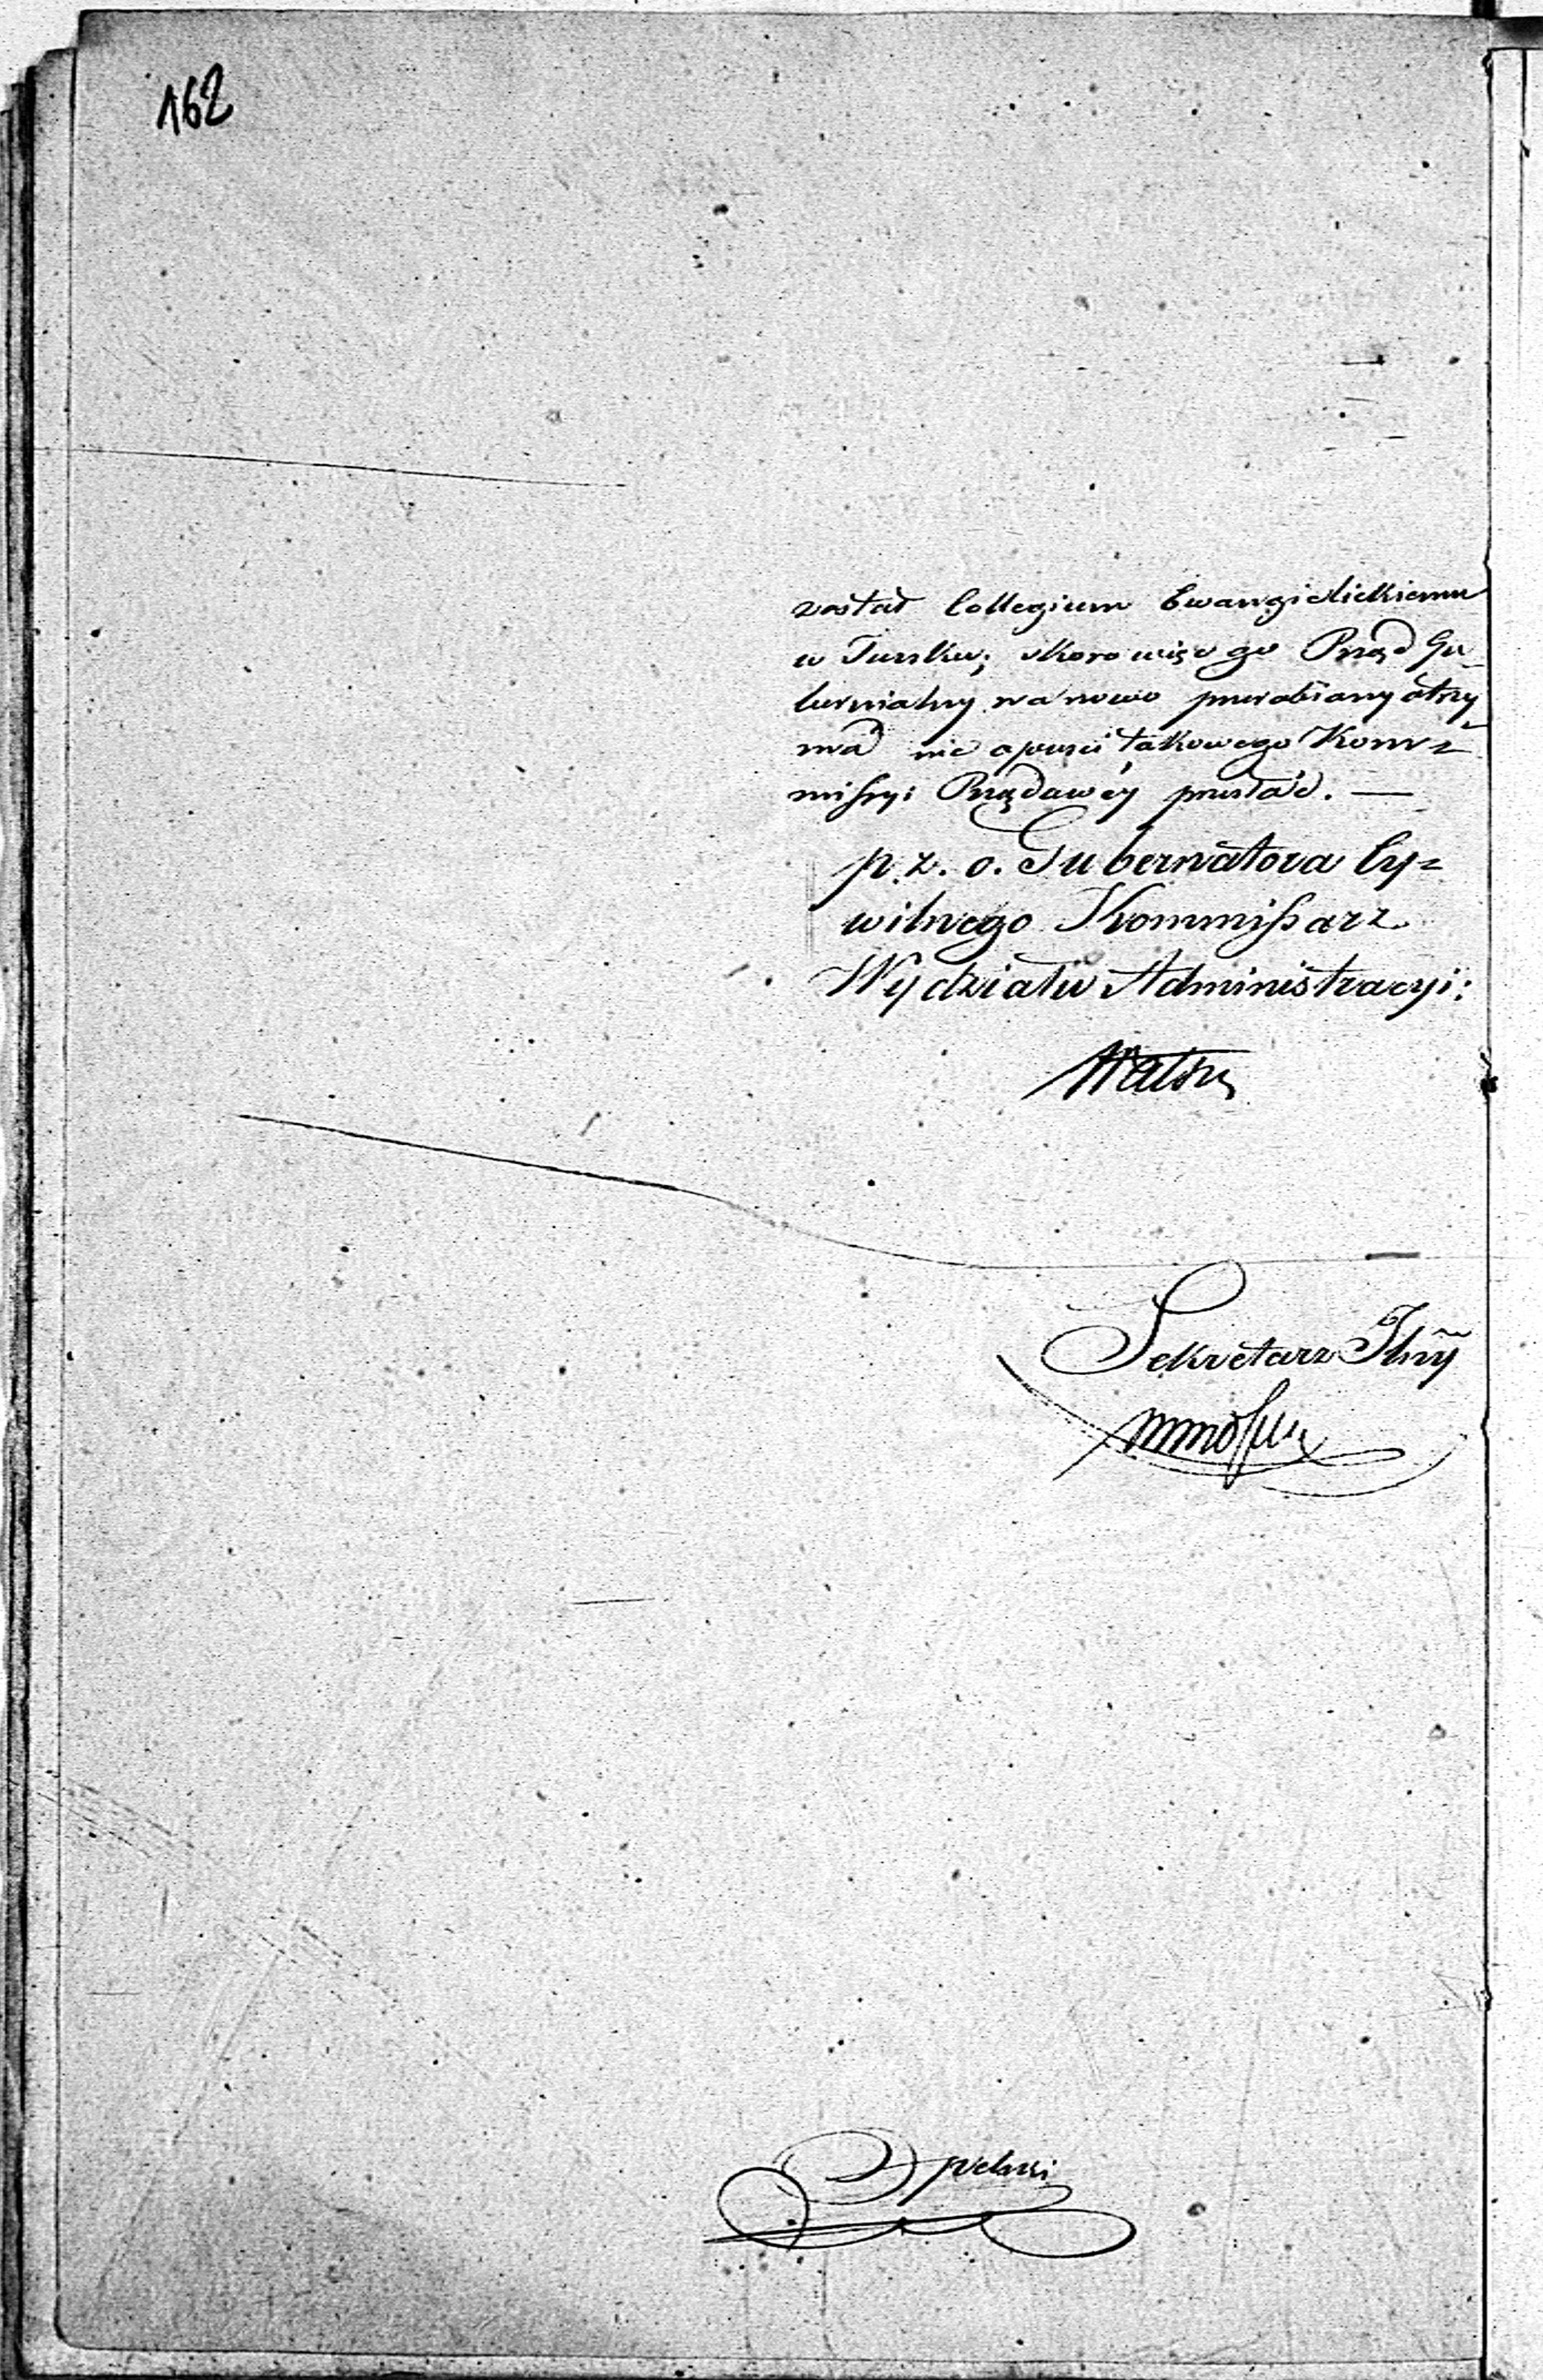 162
został Collegium Ewangielickiemu
w Turku; skoro więc go Rząd Gu-
bernialny na nowo przerobiany otrzy-
ma nie opuści takowego Kom=
missyi Rządowéy przesłać. —
p. z. o. Gubernatora Cy=
wilnego Kommissarz
Wydziału Administracyi:
Sekretarz Jlny